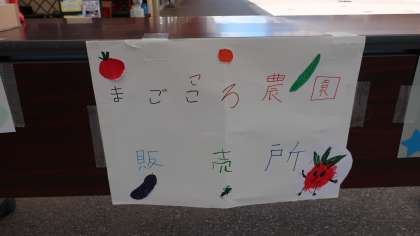 まごころ農園
販売所